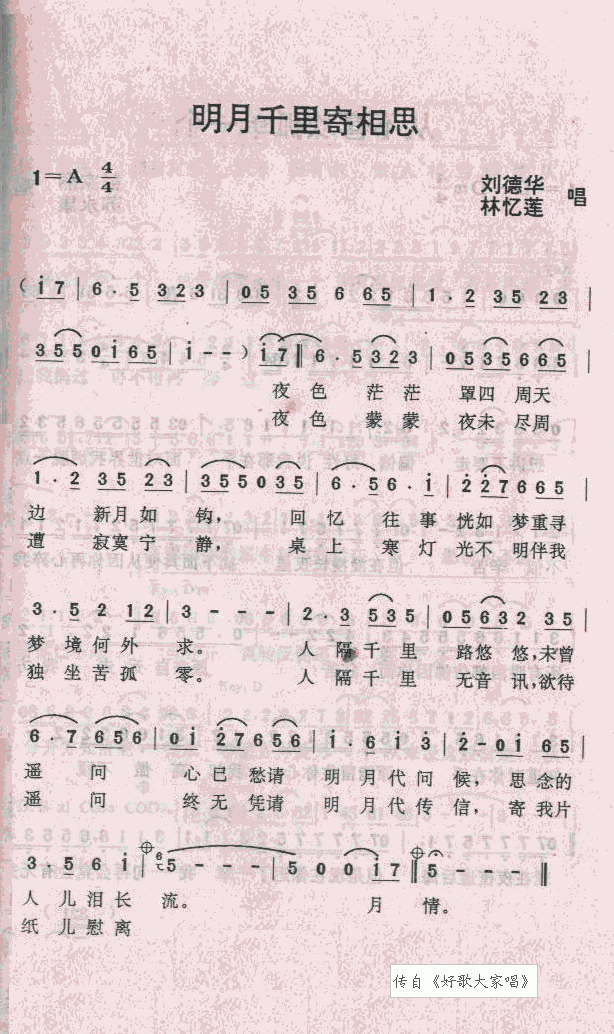 明月千里寄相思
1=A 4/4
刘德华
林忆莲 唱
( i̇ 7 | 6 · 5 3 2 3 | 0 5 3 5 6 6 5 | 1 · 2 3 5 2 3 |
3 5 5 0 i̇ 6 5 | i̇ - - ) i̇ 7 ‖ 6 · 5 3 2 3 | 0 5 3 5 6 6 5 |
夜 色 茫 茫 罩四 周天
夜 色 蒙 蒙 夜未 尽周
1 · 2 3 5 2 3 | 3 5 5 0 3 5 | 6 · 5 6 · i̇ | 2̇ 2̇ 7 6 6 5 |
边 新月如 钩, 回 忆 往 事 恍如 梦重寻
遭 寂寞宁 静, 桌 上 寒 灯 光不 明伴我
3 · 5 2 1 2 | 3 - - - | 2 · 3 5 3 5 | 0 5 6 3 2 3 5 |
梦 境何外 求。 人 隔千 里 路悠 悠,未曾
独 坐苦孤 零。 人 隔千 里 无音 讯,欲待
6 · 7 6 5 6 | 0 i̇ 2̇ 7 6 5 6 | i̇ · 6 i̇ 3̇ | 2̇ - 0 i̇ 6 5 |
遥 问 心已 愁请 明 月代问 候, 思 念的
遥 问 终无 凭请 明 月代传 信, 寄 我片
3 · 5 6 i̇ | 6 5 - - - | 5 0 0 i̇ 7 ‖ 5 - - - ‖
人 儿泪长 流。 月 情。
纸 儿慰离
传自《好歌大家唱》